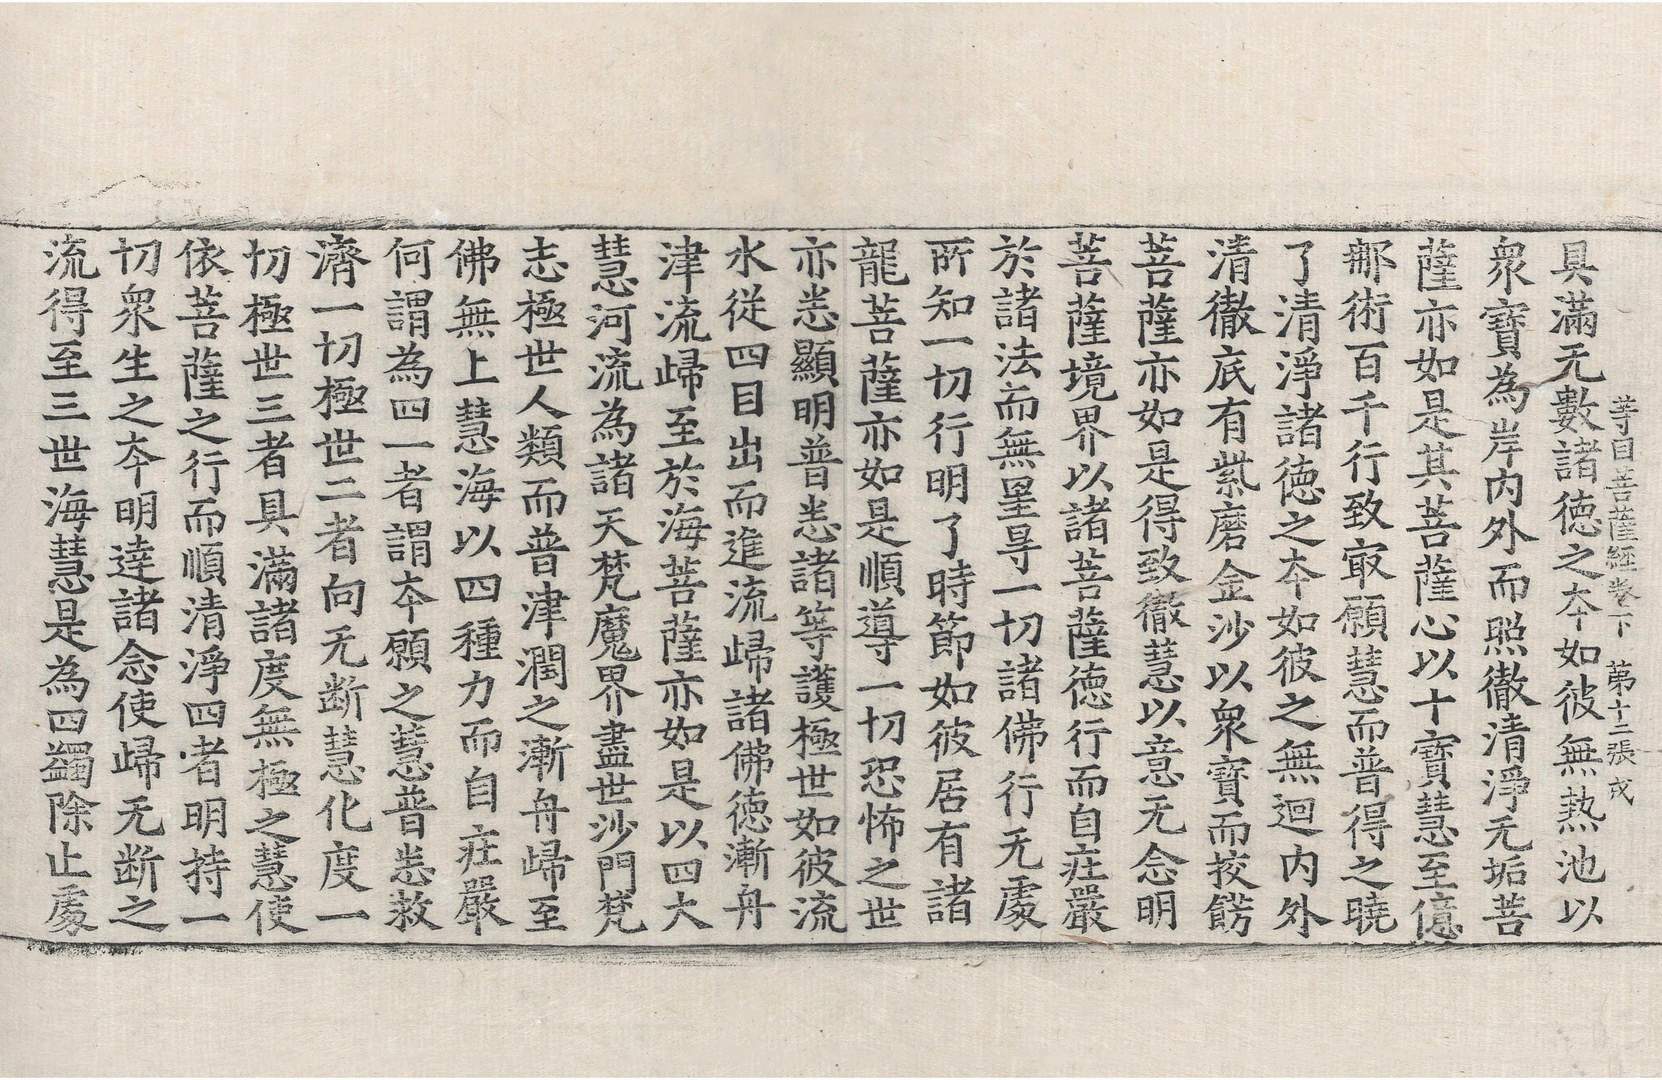 等目菩薩經卷下　第十二張　戎
具滿无數諸德之夲如彼無熱池以
衆寶為岸內外而照徹清淨无垢菩
薩亦如是其菩薩心以十寶慧至億
那術百千行致㝡願慧而普得之曉
了清淨諸德之夲如彼之無迴內外
清徹底有紫磨金沙以衆寶而挍餝
菩薩亦如是得致徹慧以意无念明
菩薩境界以諸菩薩德行而自莊嚴
於諸法而無罣㝵一切諸佛行无處
所知一切行明了時節如彼居有諸
龍菩薩亦如是順導一切恐怖之世
亦悉顯明普悉諸等護極世如彼流
水從四目出而進流歸諸佛德漸舟
津流歸至於海菩薩亦如是以四大
慧河流為諸天梵魔界盡世沙門梵
志極世人類而普津潤之漸舟歸至
佛無上慧海以四種力而自莊嚴
何謂為四一者謂夲願之慧普悉救
濟一切極世二者向无斷慧化度一
切極世三者具滿諸度無極之慧使
依菩薩之行而順清淨四者明持一
切衆生之夲明達諸念使歸无斷之
流得至三世海慧是為四蠲除止處